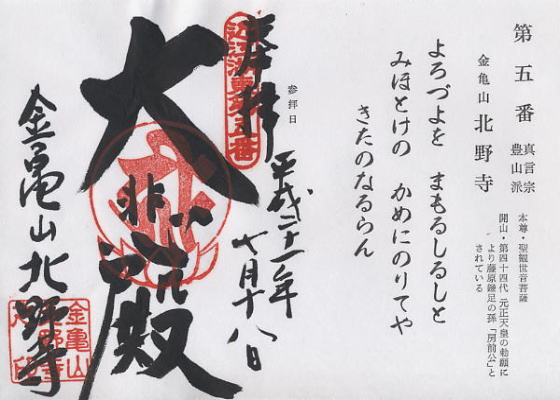 第五番
真言宗
豊山派
金亀山 北野寺
本尊・聖観世音菩薩
開山・第四十四代 元正天皇の勅願に
より藤原鎌足の孫「房前公」と
されている
よろづよを まもるしるしと
みほとけの かめにのりてや
きたのなるらん
参拝日
平成二十一年
七月十八日
奉拝
大悲殿
金亀山北野寺
金亀山
北野寺